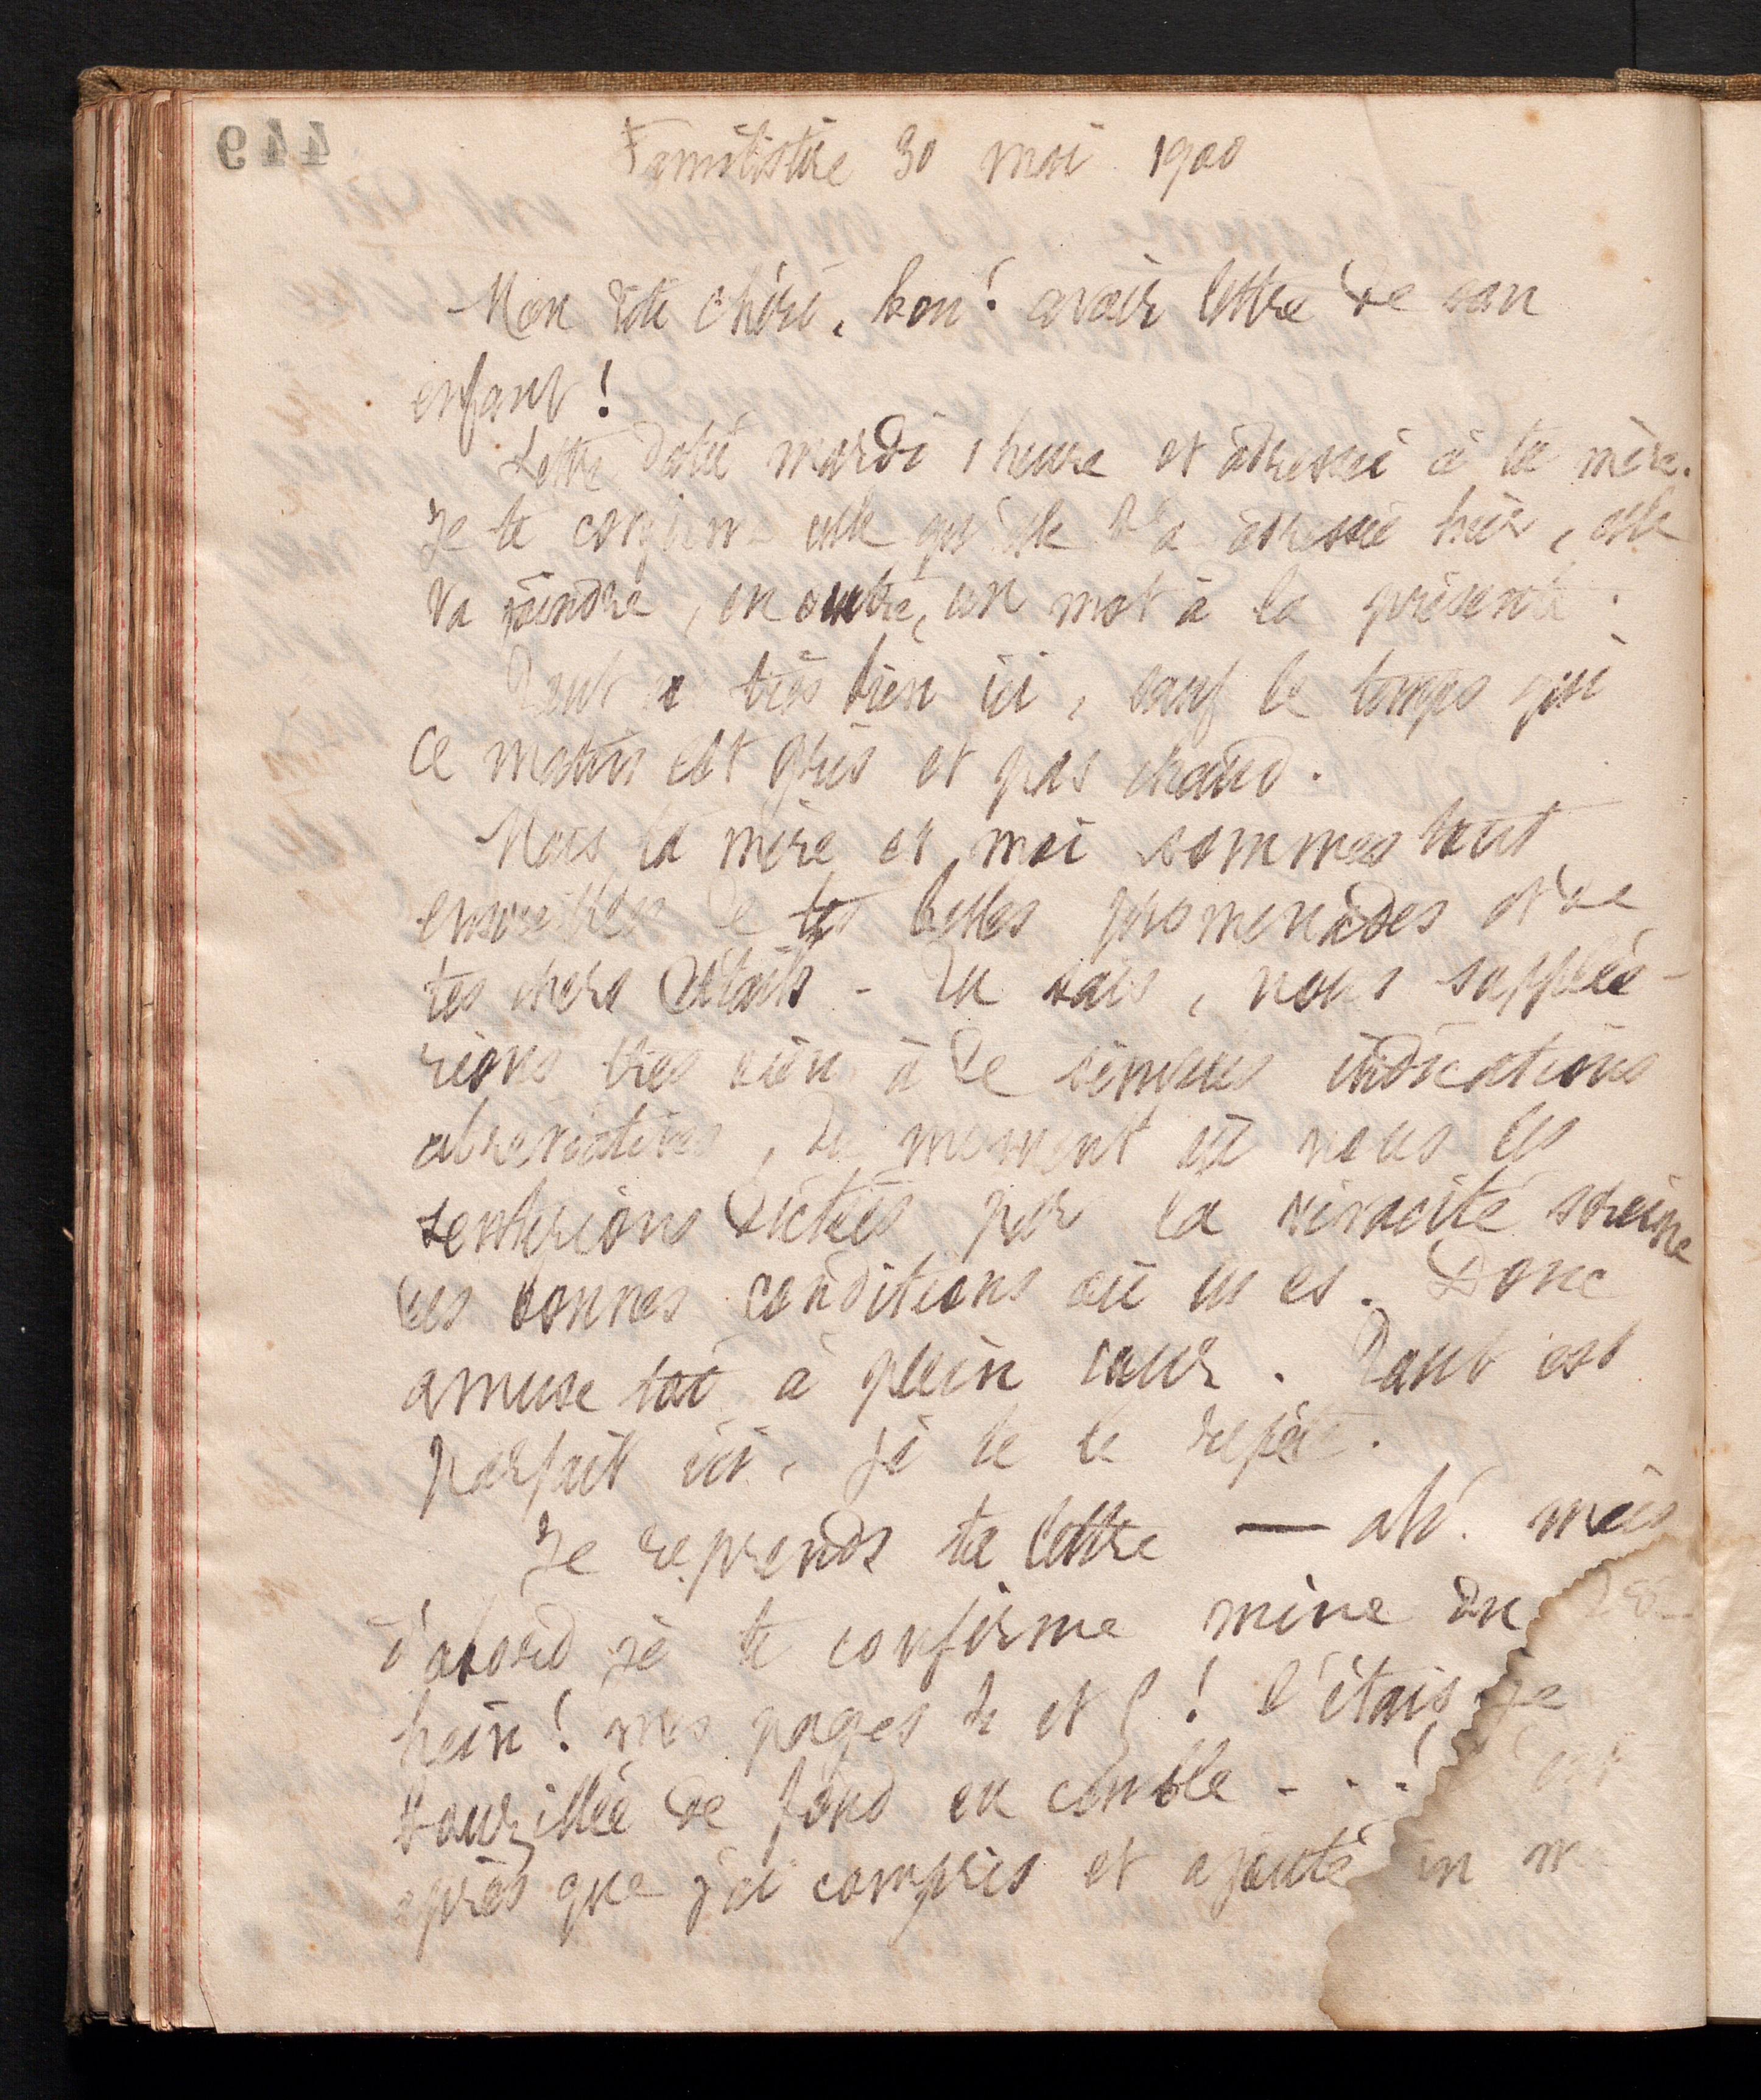 449
Familistère 30 mai 1900
Mon chéri, bon! avoir lettre de son
enfant!
Lettre datée mardi 1 heure et adressée à ta mère.
Je te confirme celle qu'elle t'a adressée hier, elle
va joindre, en outre, un mot à la présente.
Tout va très bien ici, sauf le temps qui
ce matin est gris et pas chaud.
Mais ta mère et moi sommes tout
de tes belles promenades et de
tes chers détails - Tu sais, nous supplée-
rions très bien à de simples indications
abréviatives, du moment où nous les
sentirions dictées par la vivacité sereine
des bonnes conditions où tu es. Donc
amuse toi à plein cœur. Tout est
parfait ici, je te le répète.
Je reprends ta lettre — ah! mais
d'abord je te confirme mienne du 28 -
hein! mes pages 4 et 5! l'étais-je
de fond en comble - . . ! C'est
après que j'ai compris et ajouté un m